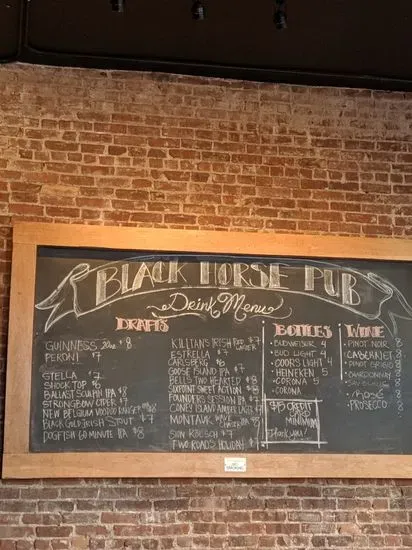 BLACK HORSE PUB
Drink Menu
DRAFTS
GUINNESS 20oz $8
PERONI $7
STELLA $7
SHOCK TOP $6
BALLAST SCULPIN IPA $8
STRONGBOW CIDER $7
NEW BELGIUM VOODOO RANGER $8
BLACK GOLD IRISH STOUT $7
DOGFISH 60 MINUTE IPA $8
KILLIAN'S IRISH RED $7
ESTRELLA $7
CARLSBERG $6
GOOSE ISLAND IPA $7
BELL'S TWO HEARTED $8
SIXPOINT SWEET ACTION $8
FOUNDERS SESSION IPA $7
CONEY ISLAND AMBER LAGER $7
MONTAUK IPA $8
SION KOLSCH $7
TWO ROADS HOLIDAY
BOTTLES
BUDWEISER 4
BUD LIGHT 4
COORS LIGHT 4
HEINEKEN 5
CORONA 5
CORONA
CREDIT
MINIMUM
Thank you!
WINE
PINOT NOIR 8
CABERNET
PINOT GRIGIO
CHARDONNAY
ROSÉ
PROSECCO
SMOKING